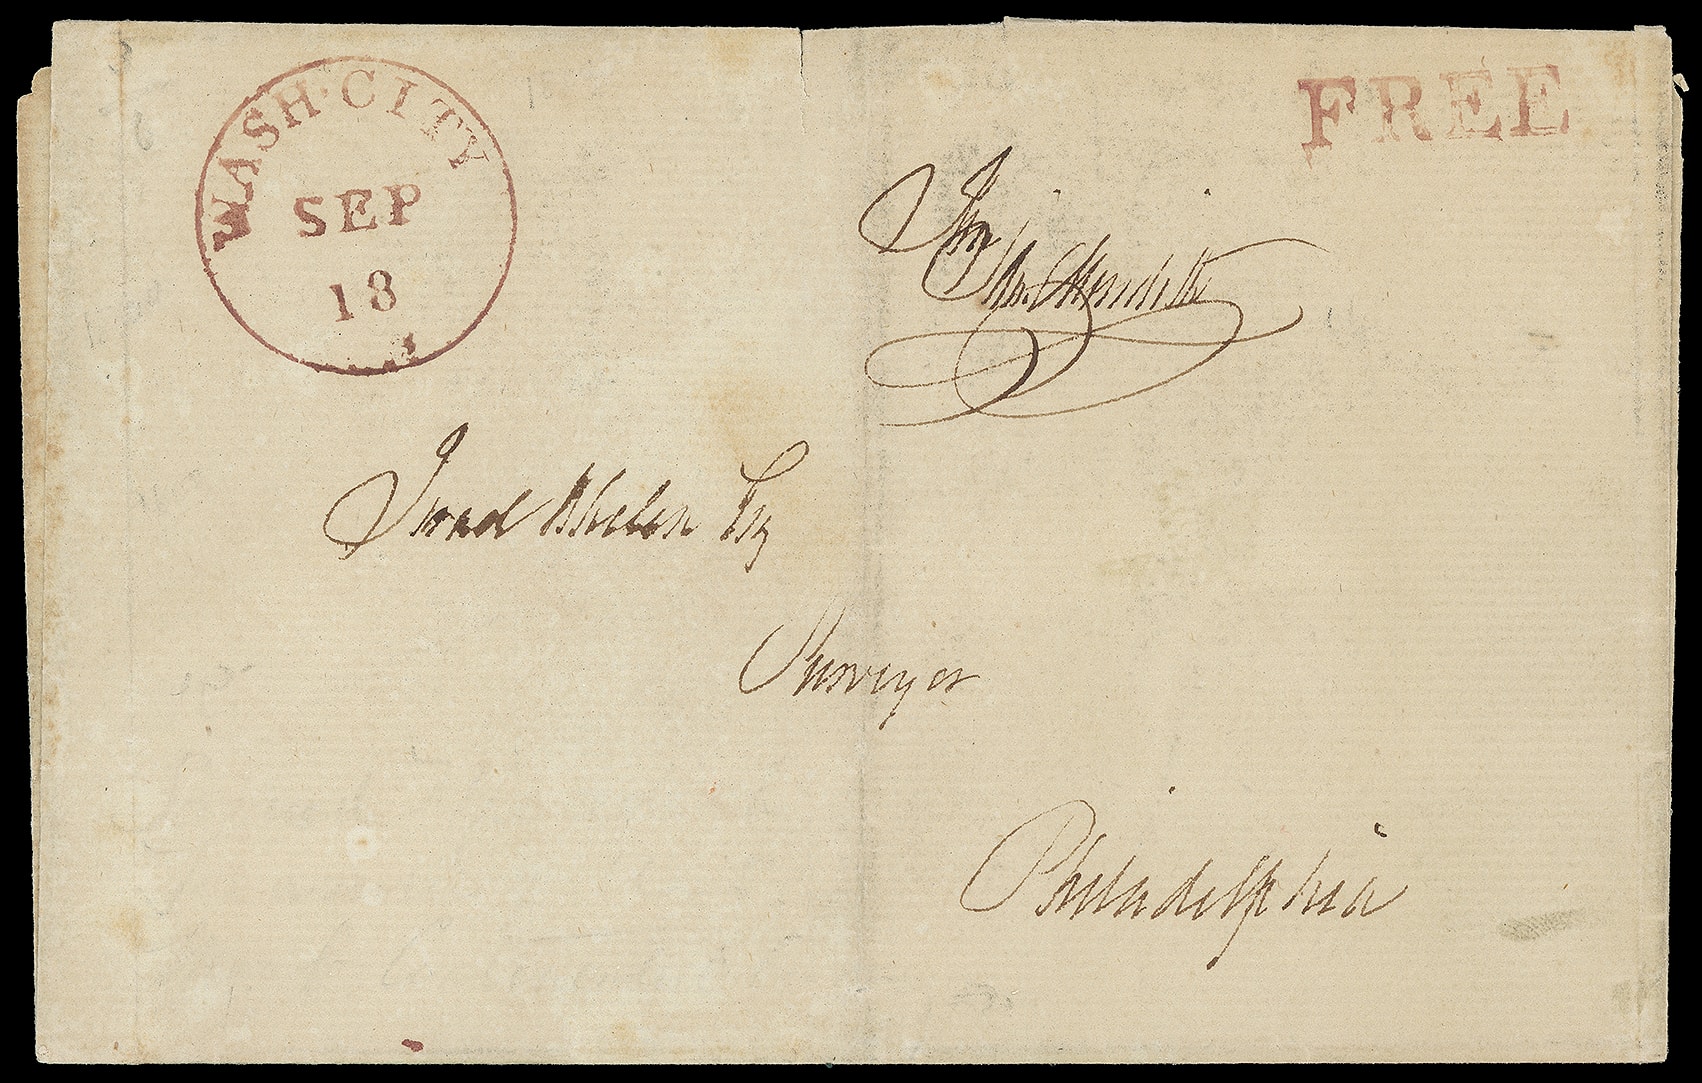 WASH · CITY
SEP
18
FREE
Sam
Israel Whelen Esq
Surveyor
Philadelphia